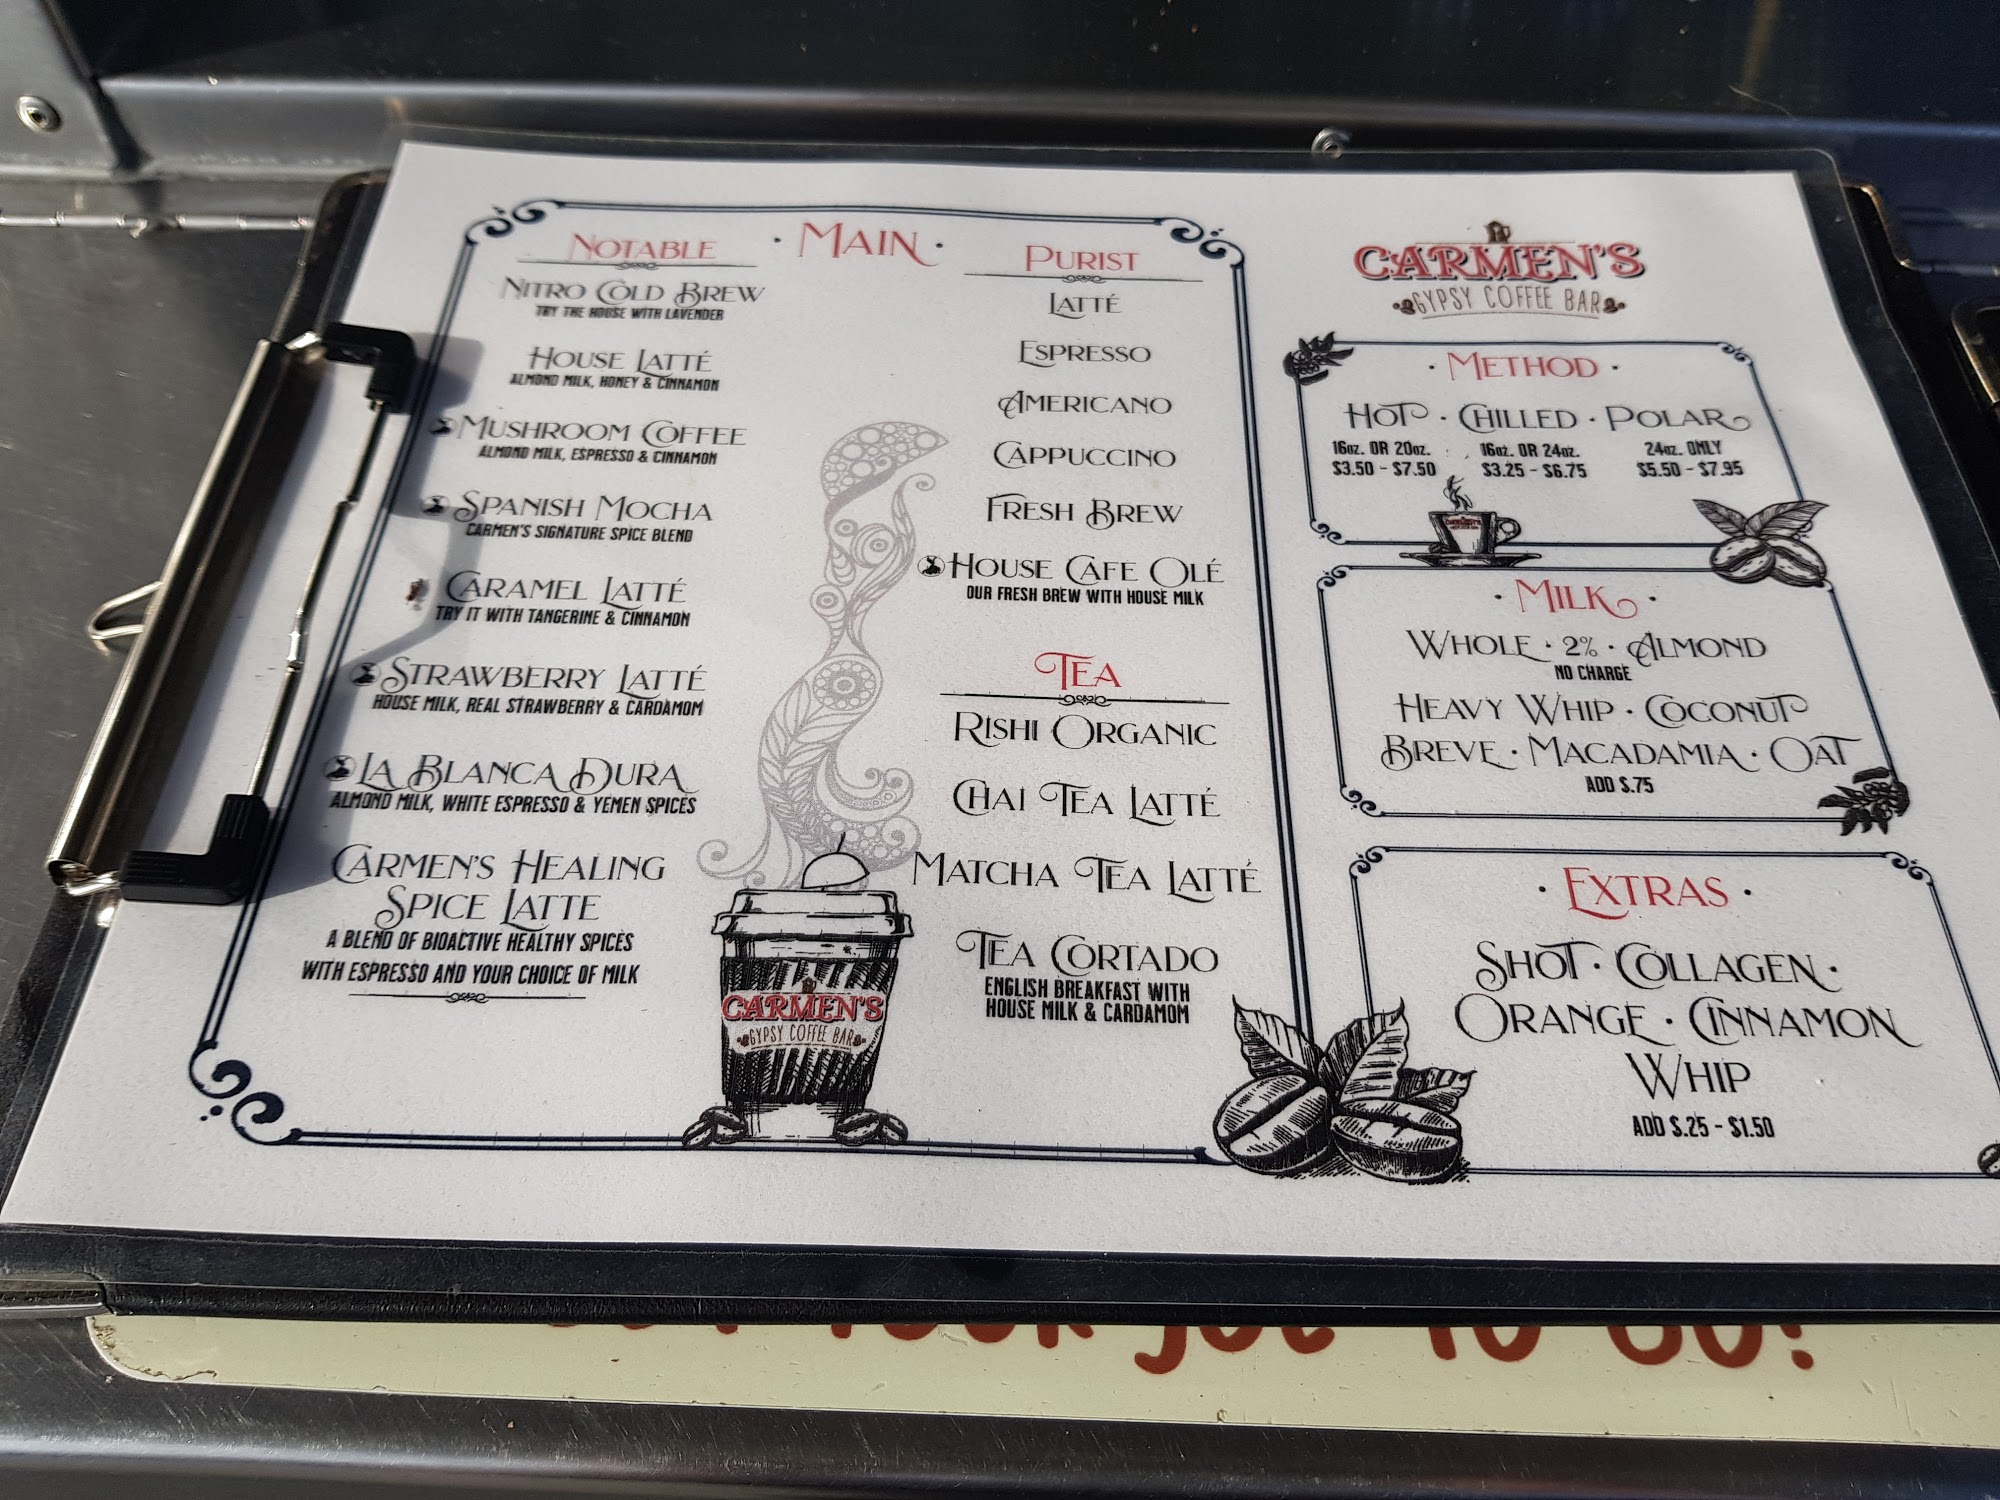 · Main ·
Notable
Nitro Cold Brew
TRY THE HOUSE WITH LAVENDER
House Latté
ALMOND MILK, HONEY & CINNAMON
Mushroom Coffee
ALMOND MILK, ESPRESSO & CINNAMON
Spanish Mocha
CARMEN'S SIGNATURE SPICE BLEND
Caramel Latté
TRY IT WITH TANGERINE & CINNAMON
Strawberry Latté
HOUSE MILK, REAL STRAWBERRY & CARDAMOM
La Blanca Dura
ALMOND MILK, WHITE ESPRESSO & YEMEN SPICES
Carmen's Healing
Spice Latte
A BLEND OF BIOACTIVE HEALTHY SPICES
WITH ESPRESSO AND YOUR CHOICE OF MILK
CARMEN'S
GYPSY COFFEE BAR
Purist
Latté
Espresso
Americano
Cappuccino
Fresh Brew
House Cafe Olé
OUR FRESH BREW WITH HOUSE MILK
Tea
Rishi Organic
Chai Tea Latté
Matcha Tea Latté
Tea Cortado
ENGLISH BREAKFAST WITH
HOUSE MILK & CARDAMOM
CARMEN'S
GYPSY COFFEE BAR
· Method ·
Hot · Chilled · Polar
16oz. OR 20oz. 16oz. OR 24oz. 24oz. ONLY
$3.50 - $7.50 $3.25 - $6.75 $5.50 - $7.95
· Milk ·
Whole · 2% · Almond
NO CHARGE
Heavy Whip · Coconut
Breve · Macadamia · Oat
ADD $.75
· Extras ·
Shot · Collagen ·
Orange · Cinnamon
Whip
ADD $.25 - $1.50